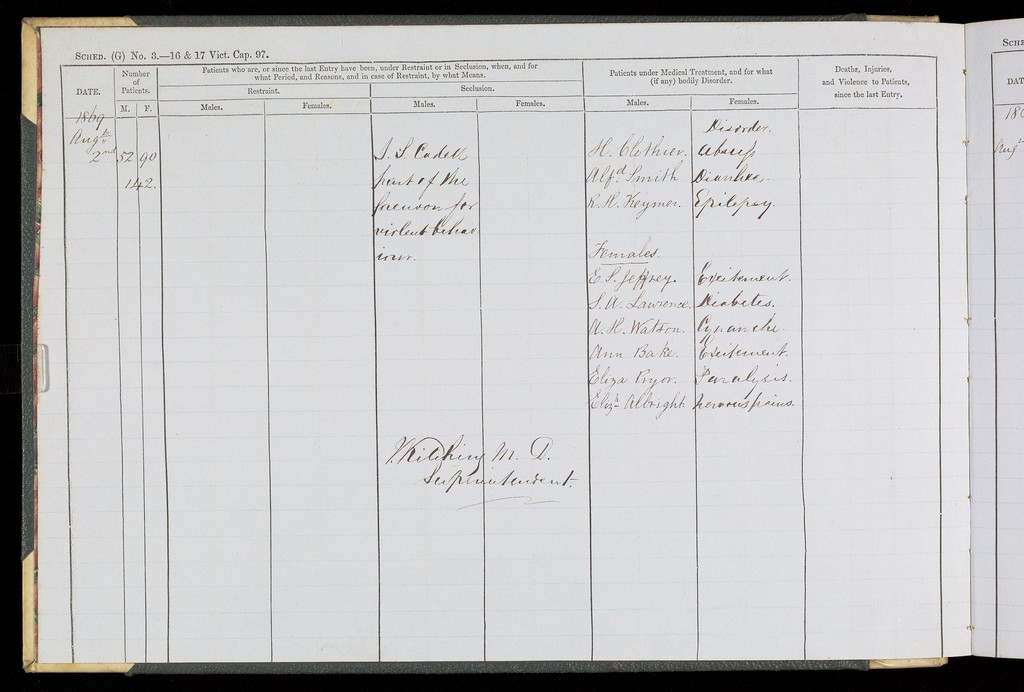 SCHED. (G) No. 3.—16 & 17 Vict. Cap. 97.
DATE.
Number of Patients.
M. F.
Patients who are, or since the last Entry have been, under Restraint or in Seclusion, when, and for what Period, and Reasons, and in case of Restraint, by what Means.
Restraint.
Males. Females.
Seclusion.
Males. Females.
Patients under Medical Treatment, and for what (if any) bodily Disorder.
Males. Females.
Deaths, Injuries, and Violence to Patients, since the last Entry.
1869
Augst
2nd 52 90
142.
J. S. Cadell
part of the
forenoon for
violent behav
iour.
Disorder.
H. Clothier. Abscess
Alfd. Smith Diarrhea.
R. H. Keymer. Epilepsy.
Females.
E. S. Jeffrey. Excitement.
S. A. Lawrence. Diabetes.
A. H. Watson. Cynanche.
Ann Bake. Excitement.
Eliza Pryor. Paralysis.
Elizh Albright. Nervous pains.
J. Kitching M. D.
Superintendent.
SCHE
DAT
186
Aug